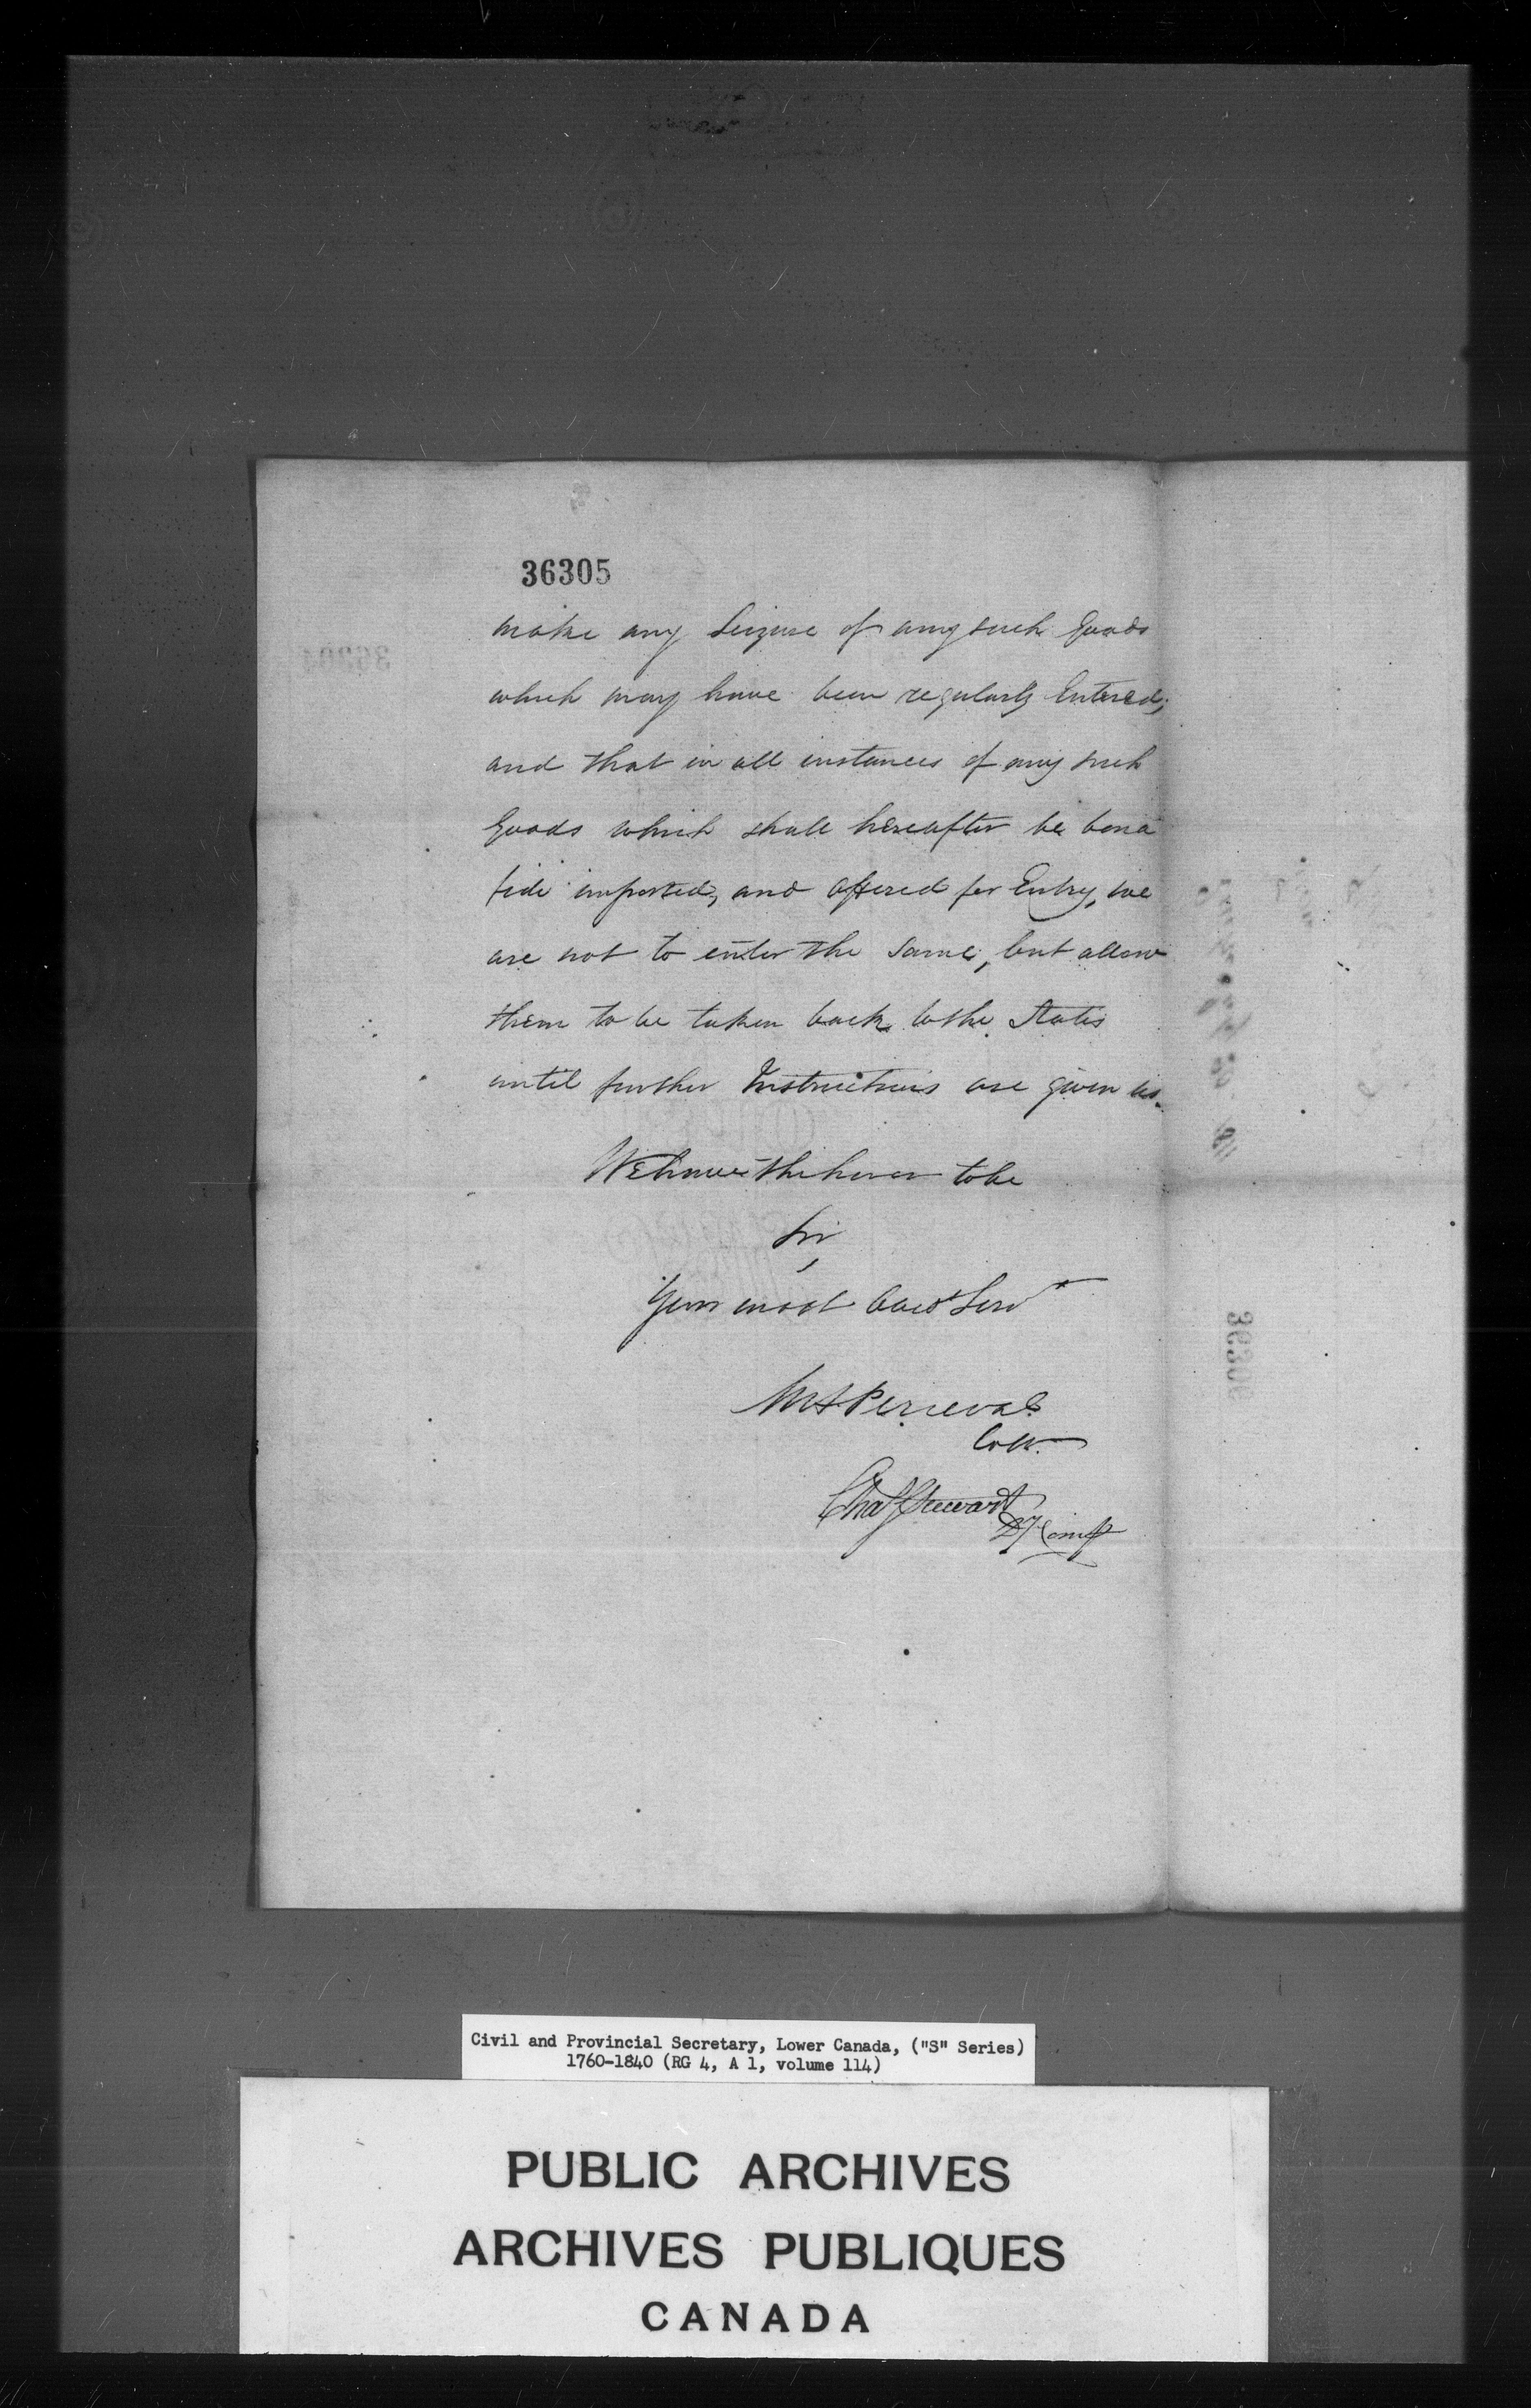 36305
make any Seizure of any such Goods
which may have been regularly Entered;
and that in all instances of any such
Goods which shall hereafter be bona
fide imported, and offered for Entry, we
are not to enter the same, but allow
them to be taken back to the States
until further Instructions are given us.
We have the honor to be
Sir,
Your most Obedt Servt
MHPerceval
Collr.
Chas Stewart
Dy Compt
36306
Civil and Provincial Secretary, Lower Canada, ("S" Series)
1760-1840 (RG 4, A 1, volume 114)
PUBLIC ARCHIVES
ARCHIVES PUBLIQUES
CANADA